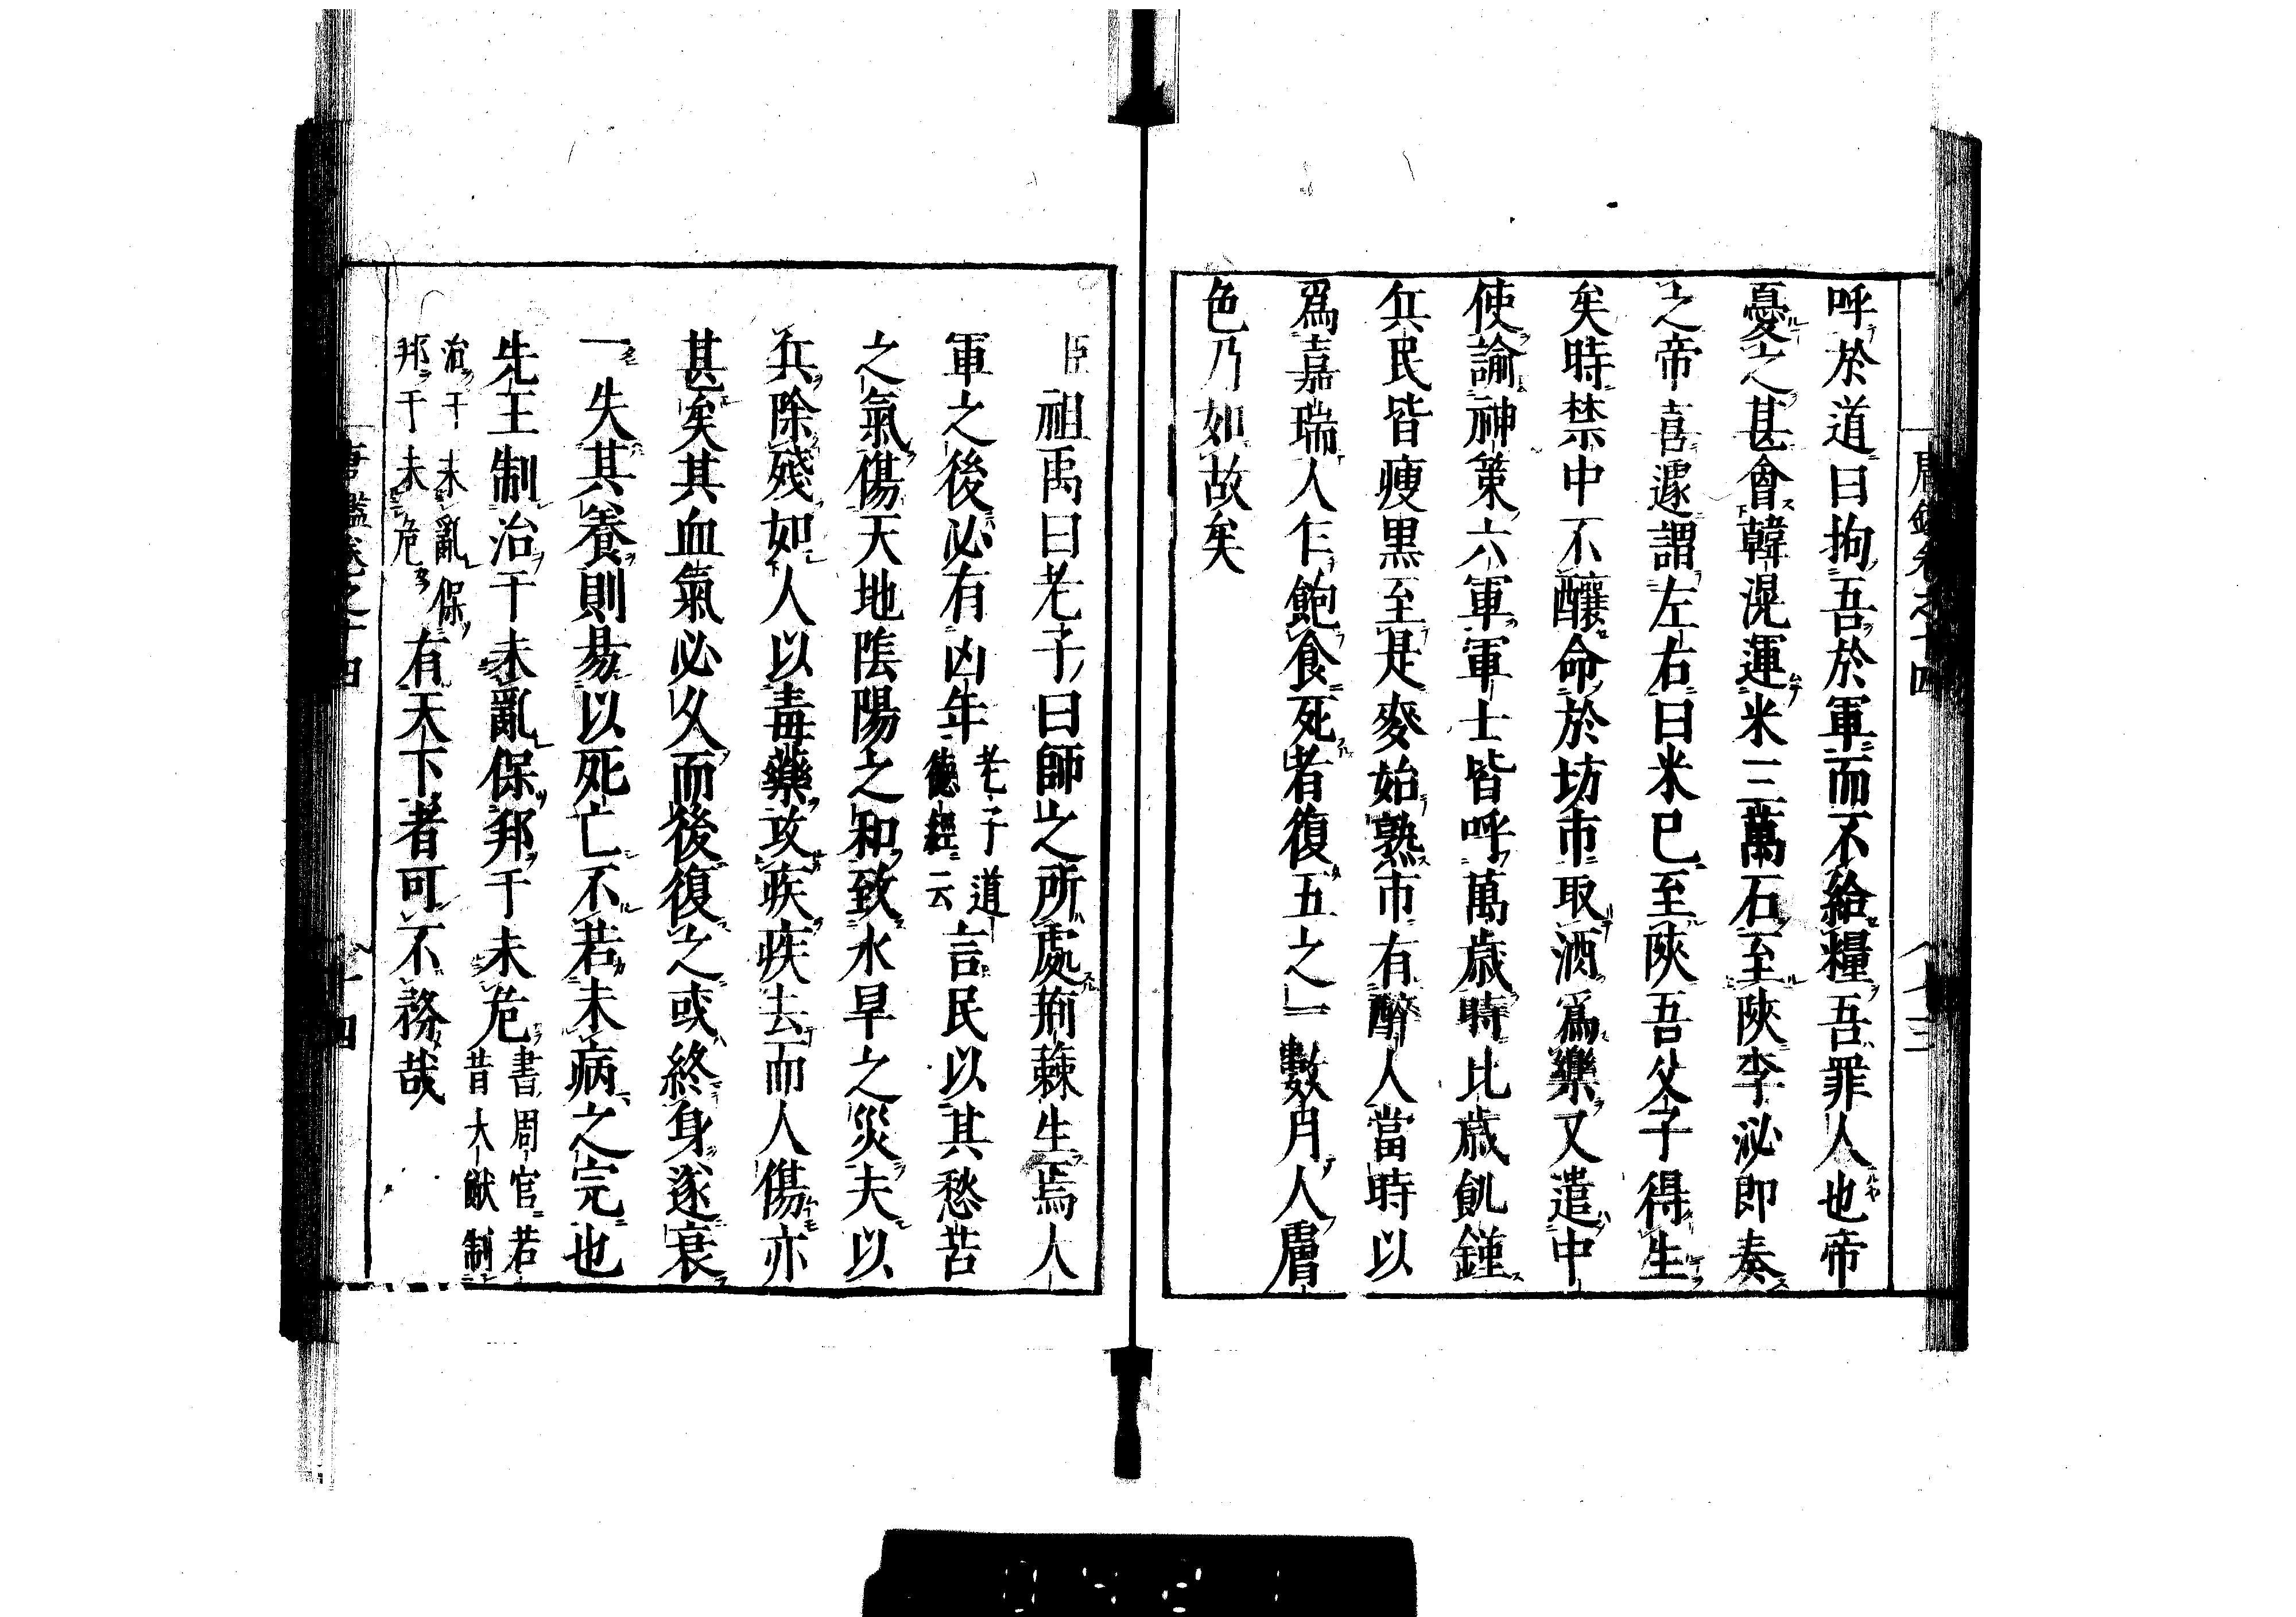 呼於道曰拘吾於軍而不給糧吾罪人也帝
憂之甚會韓滉運米三萬石至陝李泌即奏
之帝喜遽謂左右曰米已至陝吾父子得生
矣時禁中不釀命於坊市取酒爲樂又遣中
使諭神策六軍軍士皆呼萬歲時比歲飢饉
兵民皆瘦黒至是麥始熟市有醉人當時以
爲嘉瑞人乍飽食死者復五之一數月人膚
色乃如故矣
臣祖禹曰老子曰師之所處荊棘生焉人
軍之後必有凶年老子道德經云言民以其愁苦
之氣傷天地陰陽之和致水旱之災夫以
兵除殘如人以毒藥攻疾疾去而人傷亦
甚矣其血氣必久而後復之或終身遂衰
一失其養則易以死亡不若未病之完也
先王制治于未亂保邦于未危書周官若昔大猷制
治于未亂保邦于未危有天下者可不務哉
唐鑑卷之十四
十四